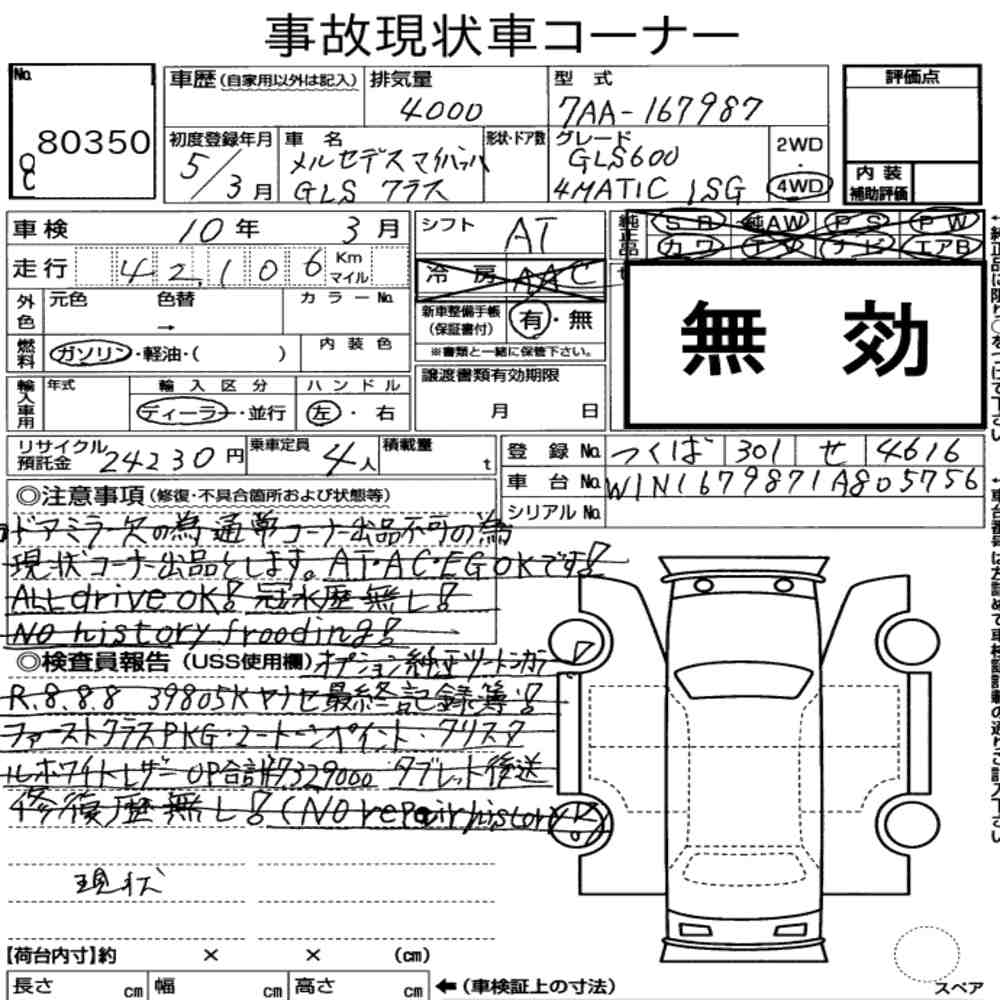 事故現状車コーナー
No. 80350
8
車歴 (自家用以外は記入) 排気量 4000 型式 7AA-167987
評価点
初度登録年月 5/3月 車名 メルセデスマイバッハ GLS クラス 形状・ドア数 グレード GLS600 4MATIC ISG 2WD・4WD
内装補助評価
車検 10年 3月
シフト AT
純正品 SR 純AW PS PW
カワ TV ナビ エアB
走行 42,106 Km マイル
冷房 AAC
外色 元色 色替 → カラーNo.
新車整備手帳 (保証書付) 有・無
無効
燃料 ガソリン・軽油・( ) 内装色
※書類と一緒に保管下さい。
輸入車用 年式 輸入区分 ディーラー・並行 ハンドル 左・右
譲渡書類有効期限 月 日
リサイクル預託金 24230円 乗車定員 4人 積載量 t
登録No. つくば 301 せ 4616
車台No. W1N1679871A805756
シリアルNo.
◎注意事項 (修復・不具合箇所および状態等)
ドアミラー欠の為通常コーナー出品不可の為
現状コーナー出品とします。AT・AC・EG OKです!
ALL drive OK! 冠水歴無し!
NO history frooding!
◎検査員報告 (USS使用欄) オプション純正ツートンカラー
R.8.8.8 39805K ヤナセ最終記録簿!
ファーストクラスPKG・2トーンペイント・クリスタ
ルホワイトレザー OP合計¥7329000 タブレット後送
修復歴無し! (NO repair history!)
現状
【荷台内寸】約 × × (cm)
長さ cm 幅 cm 高さ cm ←(車検証上の寸法)
スペア